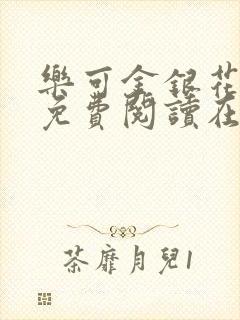 樂可金銀花
免費閱讀在
茶靡月兒1